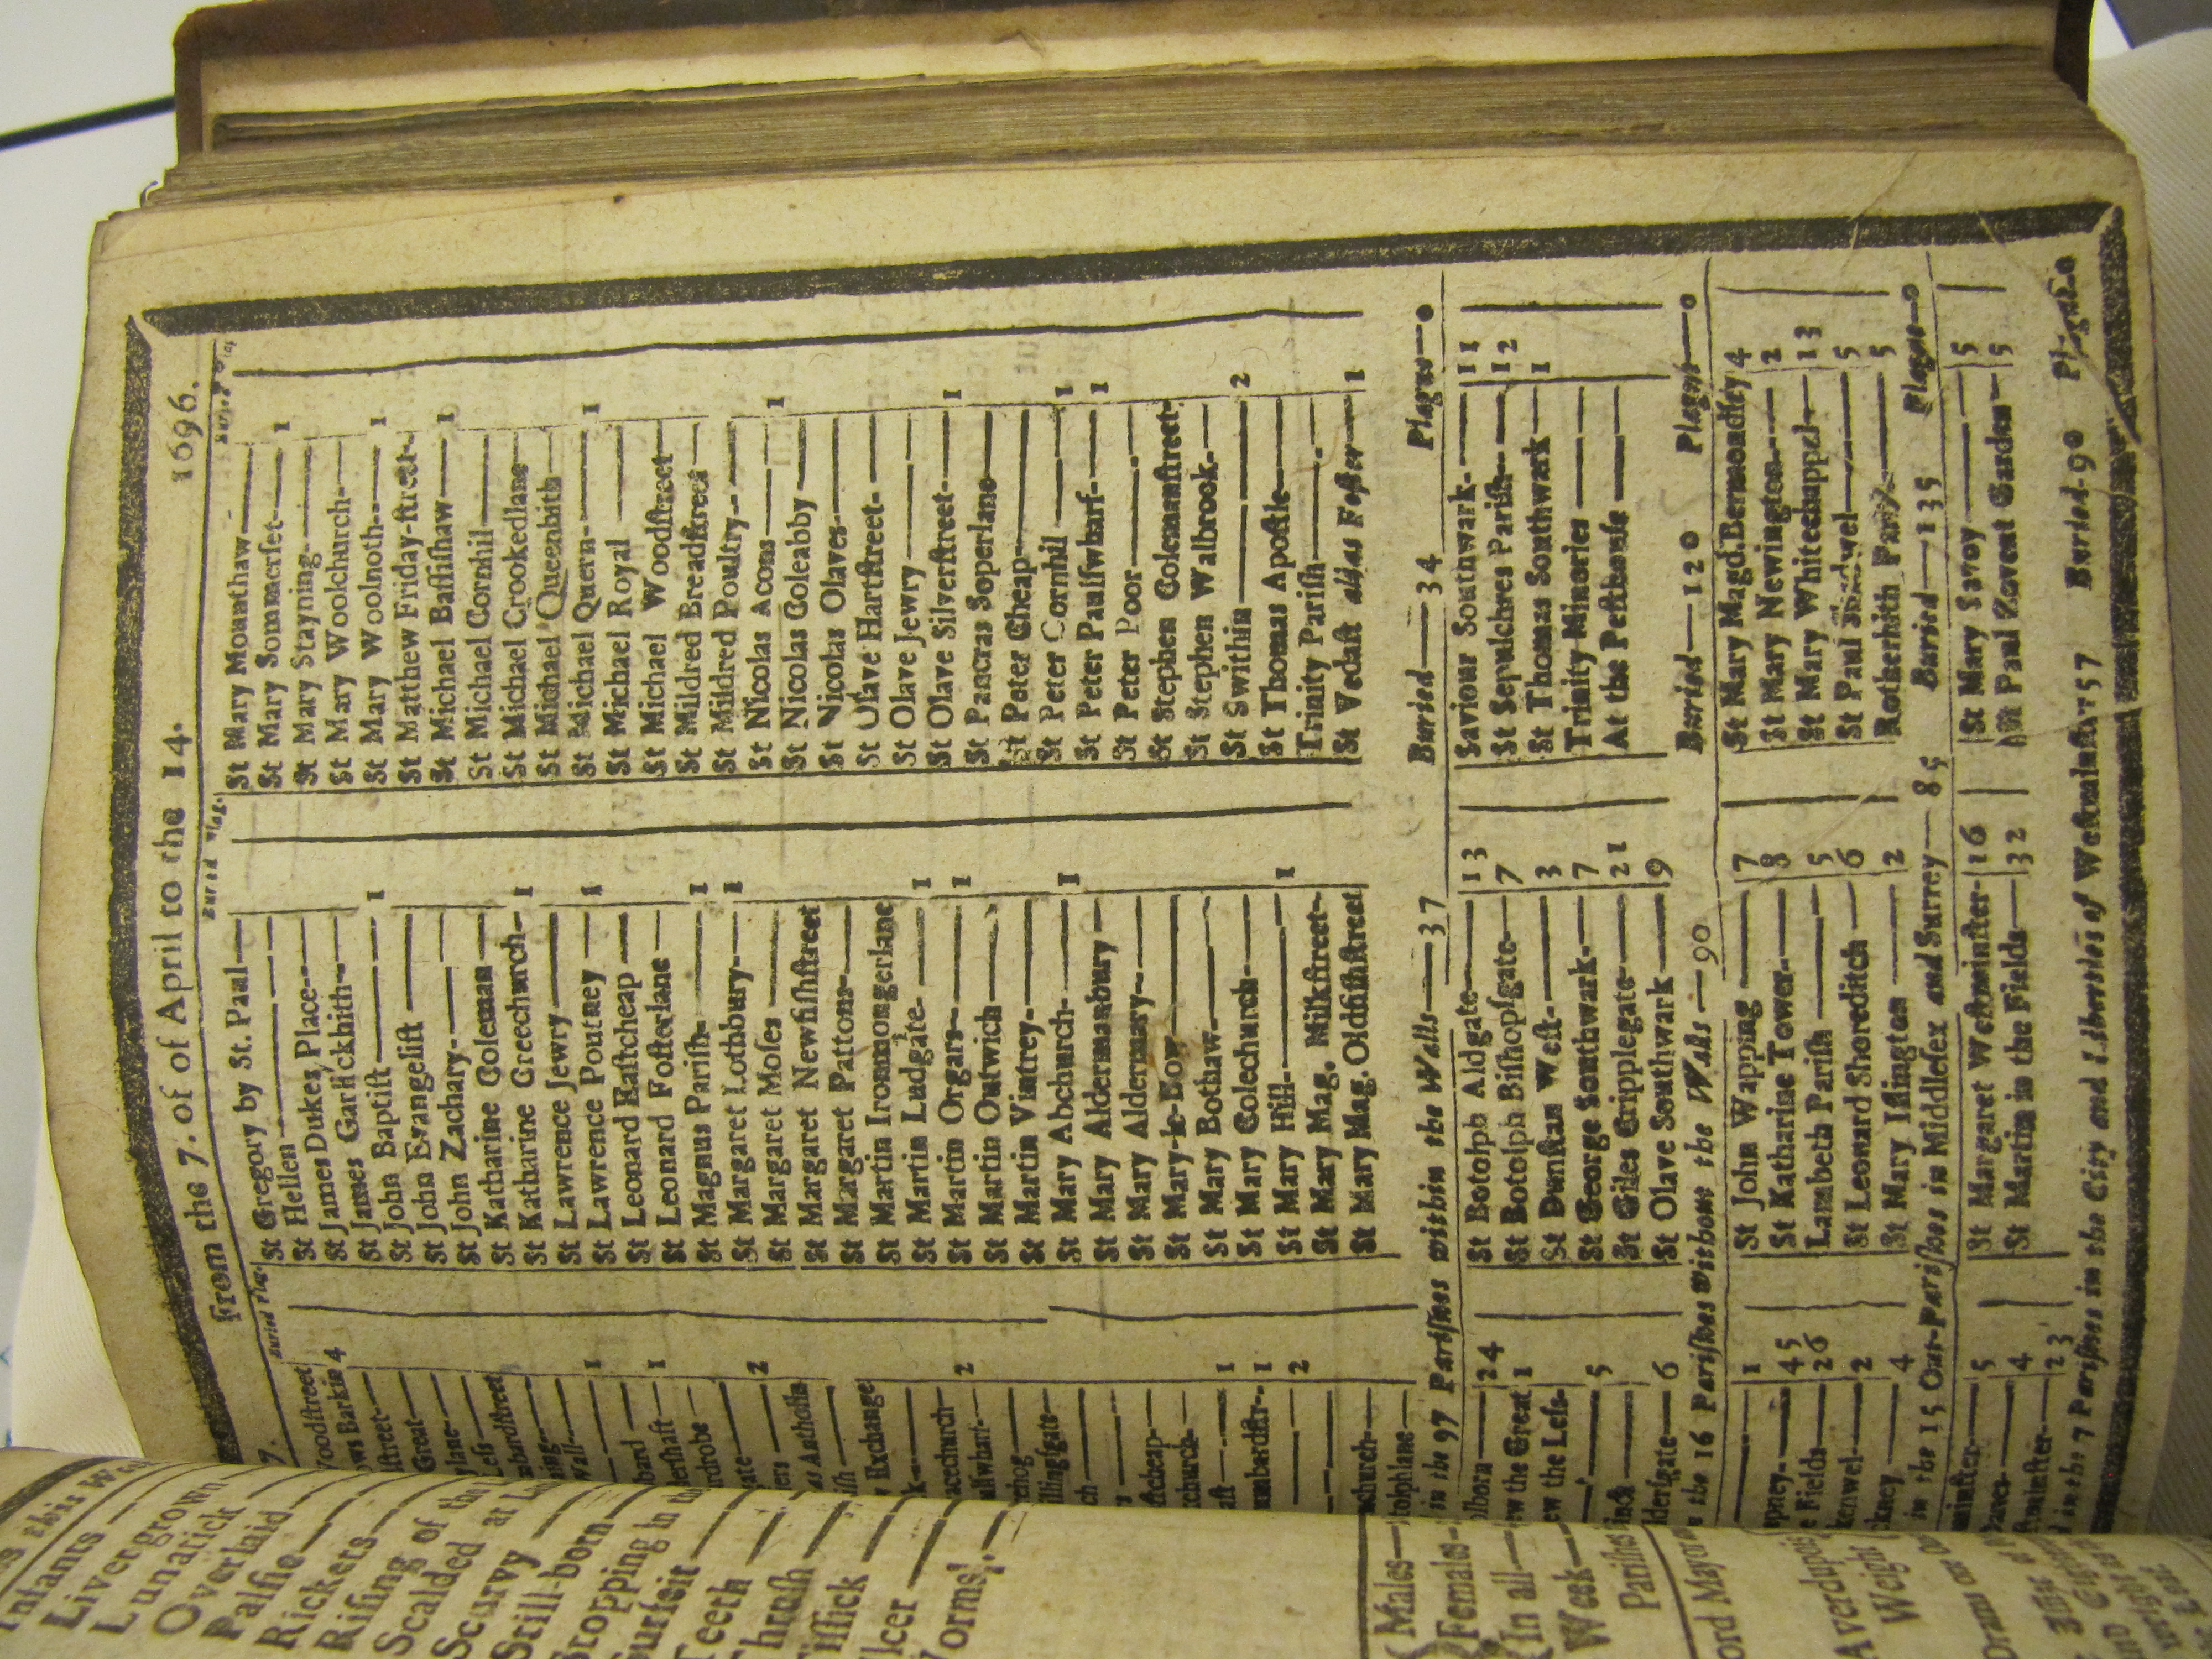 From the 7. of of April to the 14. 1696.
Buried Plag.
Buried Plag.
Woodstreet
Barkin 4
Great
lane
Less
mbardstreet
Wall 1
1
ate 2
as Anthosin
Exchange
acechurch 2
alfwharf
illingsgate
ch
stcheap
aft 1
umbardstr 1
2
church
totophlane
St Gregory by St. Paul
St Hellen
St James Dukes Place
St James Garlickhith
St John Baptist 1
St John Evangelist
St John Zachary
St Katharine Coleman
St Katharine Creechurch 1
St Lawrence Jewry
St Lawrence Poutney 1
St Leonard Eastcheap
St Leonard Fosterlane
St Magnus Parish 1
St Margaret Lothbury 1
St Margaret Moses
St Margaret Newfishstreet
St Margaret Pattons
St Martin Ironmongerlane
St Martin Ludgate 1
St Martin Orgars 1
St Martin Outwich
St Martin Vintrey
St Mary Abchurch 1
St Mary Aldermanbury
St Mary Aldermary
St Mary-le-Bow
St Mary Bothaw
St Mary Colechurch
St Mary Hill 1
St Mary Mag. Milkstreet
St Mary Mag. Oldfishstreet
St Mary Mounthaw
St Mary Sommerset 1
St Mary Stayning
St Mary Woolchurch
St Mary Woolnoth 1
St Matthew Friday-street
St Michael Bassishaw 1
St Michael Cornhil
St Michael Crookedlane
St Michael Queenhith
St Michael Quern 1
St Michael Royal
St Michael Woodstreet
St Mildred Breadstreet
St Mildred Poultry
St Nicolas Acons 1
St Nicolas Coleabby
St Nicolas Olaves
St Olave Hartstreet
St Olave Jewry
St Olave Silverstreet 1
St Pancras Soperlane
St Peter Cheap
St Peter Cornhil 1
St Peter Paulswharf 1
St Peter Poor
St Stephen Colemanstreet
St Stephen Walbrook
St Swithin 2
St Thomas Apostle
Trinity Parish
St Vedast alias Foster 1
in the 97 Parishes within the Walls 37 Buried 34 Plague 0
olborn 24
ew the Great 1
ew the Less
5
dersgate 6
St Botolph Aldgate 13
St Botolph Bishopsgate 7
St Dunstan West 3
St George Southwark 7
St Giles Cripplegate 21
St Olave Southwark 9
Saviour Southwark 11
St Sepulchres Parish 12
St Thomas Southwark 1
Trinity Minories
At the Pesthouse
the 16 Parishes without the Walls 90 Buried 120 Plague 0
1
pney 45
e Fields 26
kenwel 2
ckney 4
St John Wapping 7
St Katharine Tower 8
Lambeth Parish 5
St Leonard Shoreditch 6
St Mary Islington 2
St Mary Magd. Bermondsey 4
St Mary Newington 2
St Mary Whitechappel 13
St Paul Shadwel 5
Rotherhith Parish 5
in the 15 Out-Parishes in Middlesex and Surrey 85 Buried 135 Plague 0
minster 5
4
stminster 23
St Margaret Westminster 16
St Martin in the Fields 32
St Mary Savoy 5
St Paul Covent Garden 5
in the 7 Parishes in the City and Liberties of Westminster 57 Buried 90 Plague 0
Infants
Livergrown
Lunatick
Overlaid
Palsie
Rickets
Rising of the
Scalded
Scurvy
Still-born
Stopping in
Surfeit
Teeth
Thrush
Tissick
Ulcer
Worms
Males
Females
In all
Week
Parishes
ord Mayor
Averdupois
Weight